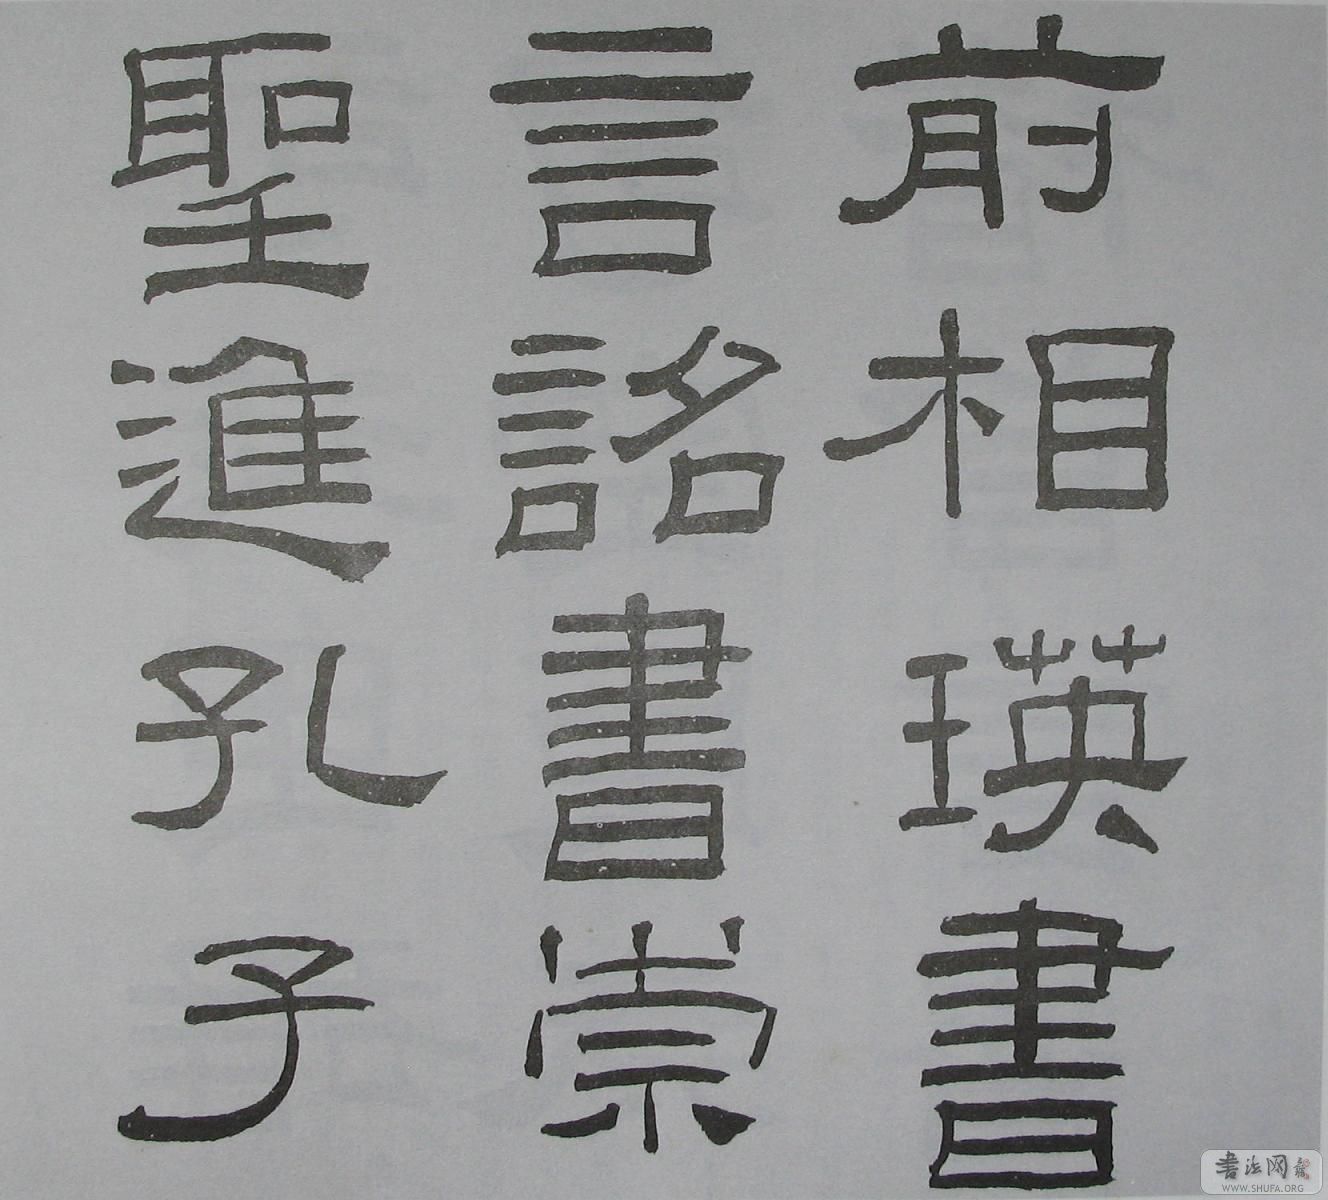 前相瑛書
言詔書崇
聖進孔子
書法网
WWW.SHUFA.ORG